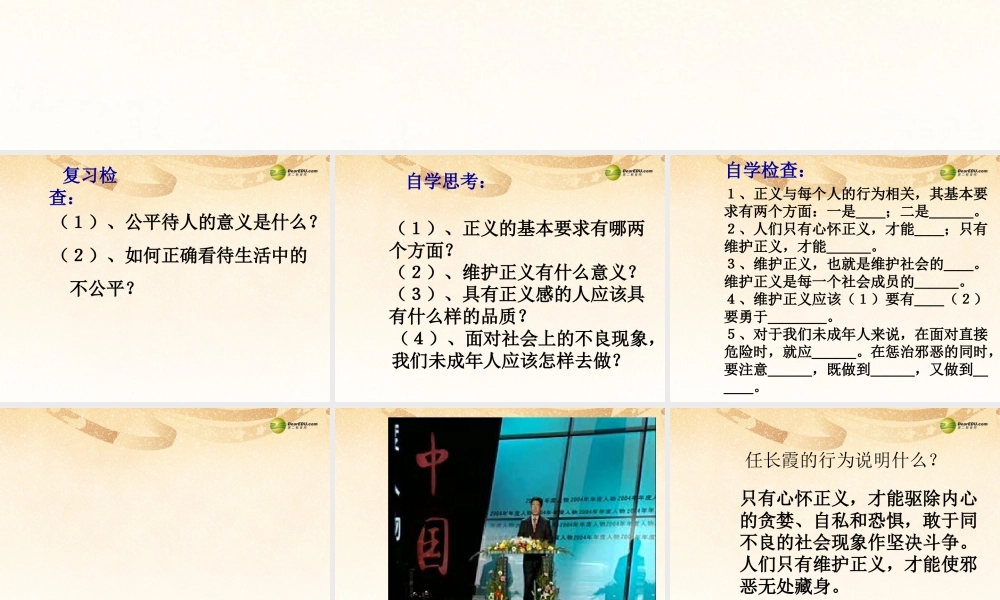 复习检
查：
（1）、公平待人的意义是什么？
（2）、如何正确看待生活中的
不公平？
DearEDU.com
自学思考：
（1）、正义的基本要求有哪两
个方面？
（2）、维护正义有什么意义？
（3）、具有正义感的人应该具
有什么样的品质？
（4）、面对社会上的不良现象，
我们未成年人应该怎样去做？
DearEDU.com
自学检查：
1、正义与每个人的行为相关，其基本要
求有两个方面：一是____；二是______。
2、人们只有心怀正义，才能____；只有
维护正义，才能______。
3、维护正义，也就是维护社会的____。
维护正义是每一个社会成员的______。
4、维护正义应该（1）要有____（2）
要勇于________。
5、对于我们未成年人来说，在面对直接
危险时，就应______。在惩治邪恶的同时，
要注意______，既做到______，又做到__
____。
DearEDU.com
DearEDU.com
中国
2004年年度人物 2004年年度人物
DearEDU.com
任长霞的行为说明什么？
只有心怀正义，才能驱除内心
的贪婪、自私和恐惧，敢于同
不良的社会现象作坚决斗争。
人们只有维护正义，才能使邪
恶无处藏身。